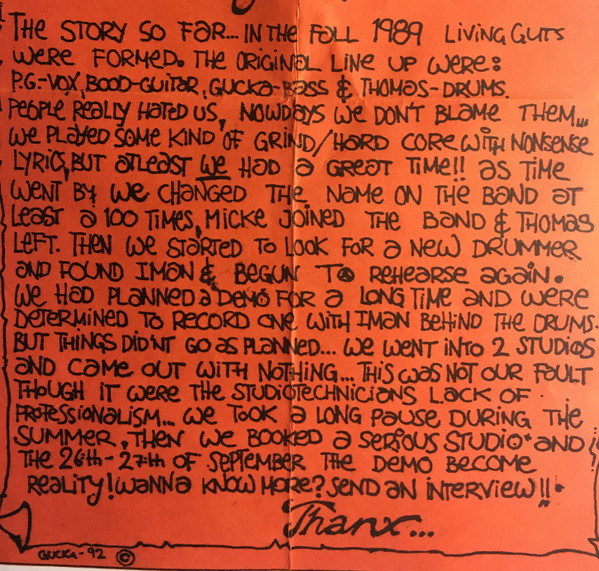 THE STORY SO FAR... IN THE FALL 1989 LIVING GUTS
WERE FORMED. THE ORIGINAL LINE UP WERE:
P.G.-VOX, BOOD-GUITAR, GUCKA-BASS & THOMAS-DRUMS.
PEOPLE REALLY HATED US, NOWDAYS WE DON'T BLAME THEM...
WE PLAYED SOME KIND OF GRIND/HARD CORE WITH NONSENSE
LYRIC, BUT ATLEAST WE HAD A GREAT TIME!! AS TIME
WENT BY WE CHANGED THE NAME ON THE BAND AT
LEAST A 100 TIMES, MICKE JOINED THE BAND & THOMAS
LEFT. THEN WE STARTED TO LOOK FOR A NEW DRUMMER
AND FOUND IMAN & BEGUN TO REHEARSE AGAIN.
WE HAD PLANNED A DEMO FOR A LONG TIME AND WERE
DETERMINED TO RECORD ONE WITH IMAN BEHIND THE DRUMS.
BUT THINGS DID'NT GO AS PLANNED... WE WENT INTO 2 STUDIOS
AND CAME OUT WITH NOTHING... THIS WAS NOT OUR FAULT
THOUGH IT WERE THE STUDIOTECHNICIANS LACK OF
PROFESSIONALISM... WE TOOK A LONG PAUSE DURING THE
SUMMER, THEN WE BOOKED A SERIOUS STUDIO* AND
THE 26th-27th OF SEPTEMBER THE DEMO BECOME
REALITY! WANNA KNOW MORE? SEND AN INTERVIEW!!
Thanx...
GUCKA-92 ©